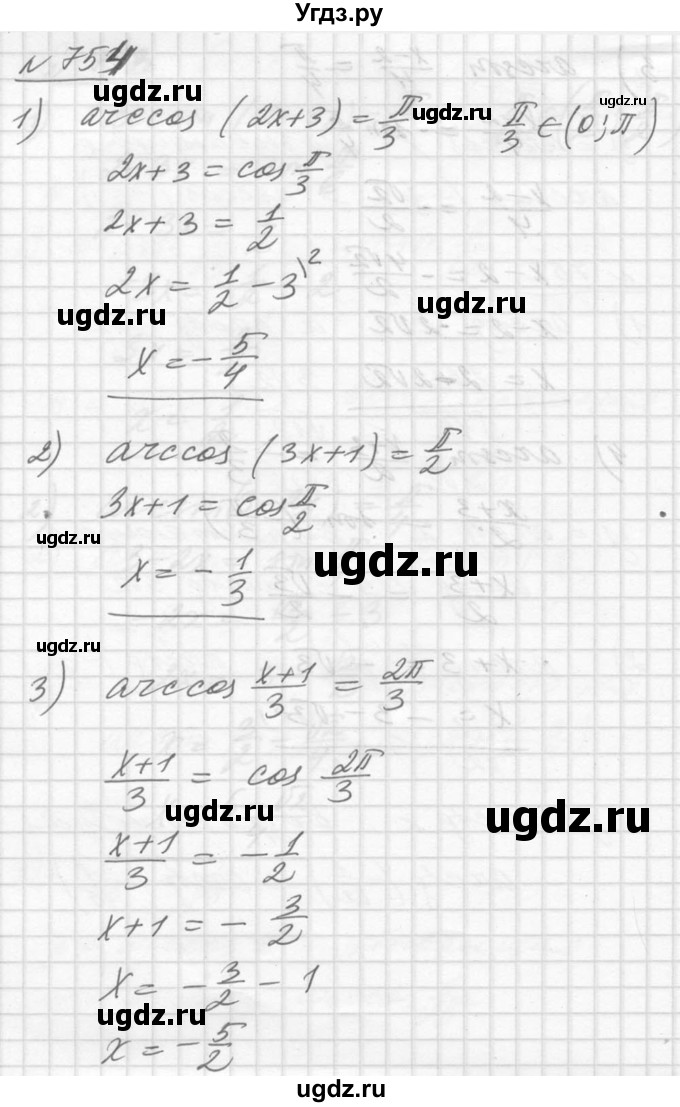 Угдз.ру
N 754
ugdz.ru
1) arccos (2x+3) = π/3 ugdz.ru π/3 ∈ (0; π) ugdz.ru
2x+3 = cos π/3
2x+3 = 1/2
2x = 1/2 - 3\2
ugdz.ru ugdz.ru
x = -5/4
2) arccos (3x+1) = π/2
3x+1 = cos π/2
ugdz.ru
x = -1/3
ugdz.ru
ugdz.ru
3) arccos (x+1)/3 = 2π/3
(x+1)/3 = cos 2π/3
ugdz.ru ugdz.ru
(x+1)/3 = -1/2
x+1 = -3/2
x = -3/2 - 1
ugdz.ru
x = -5/2
ugdz.ru